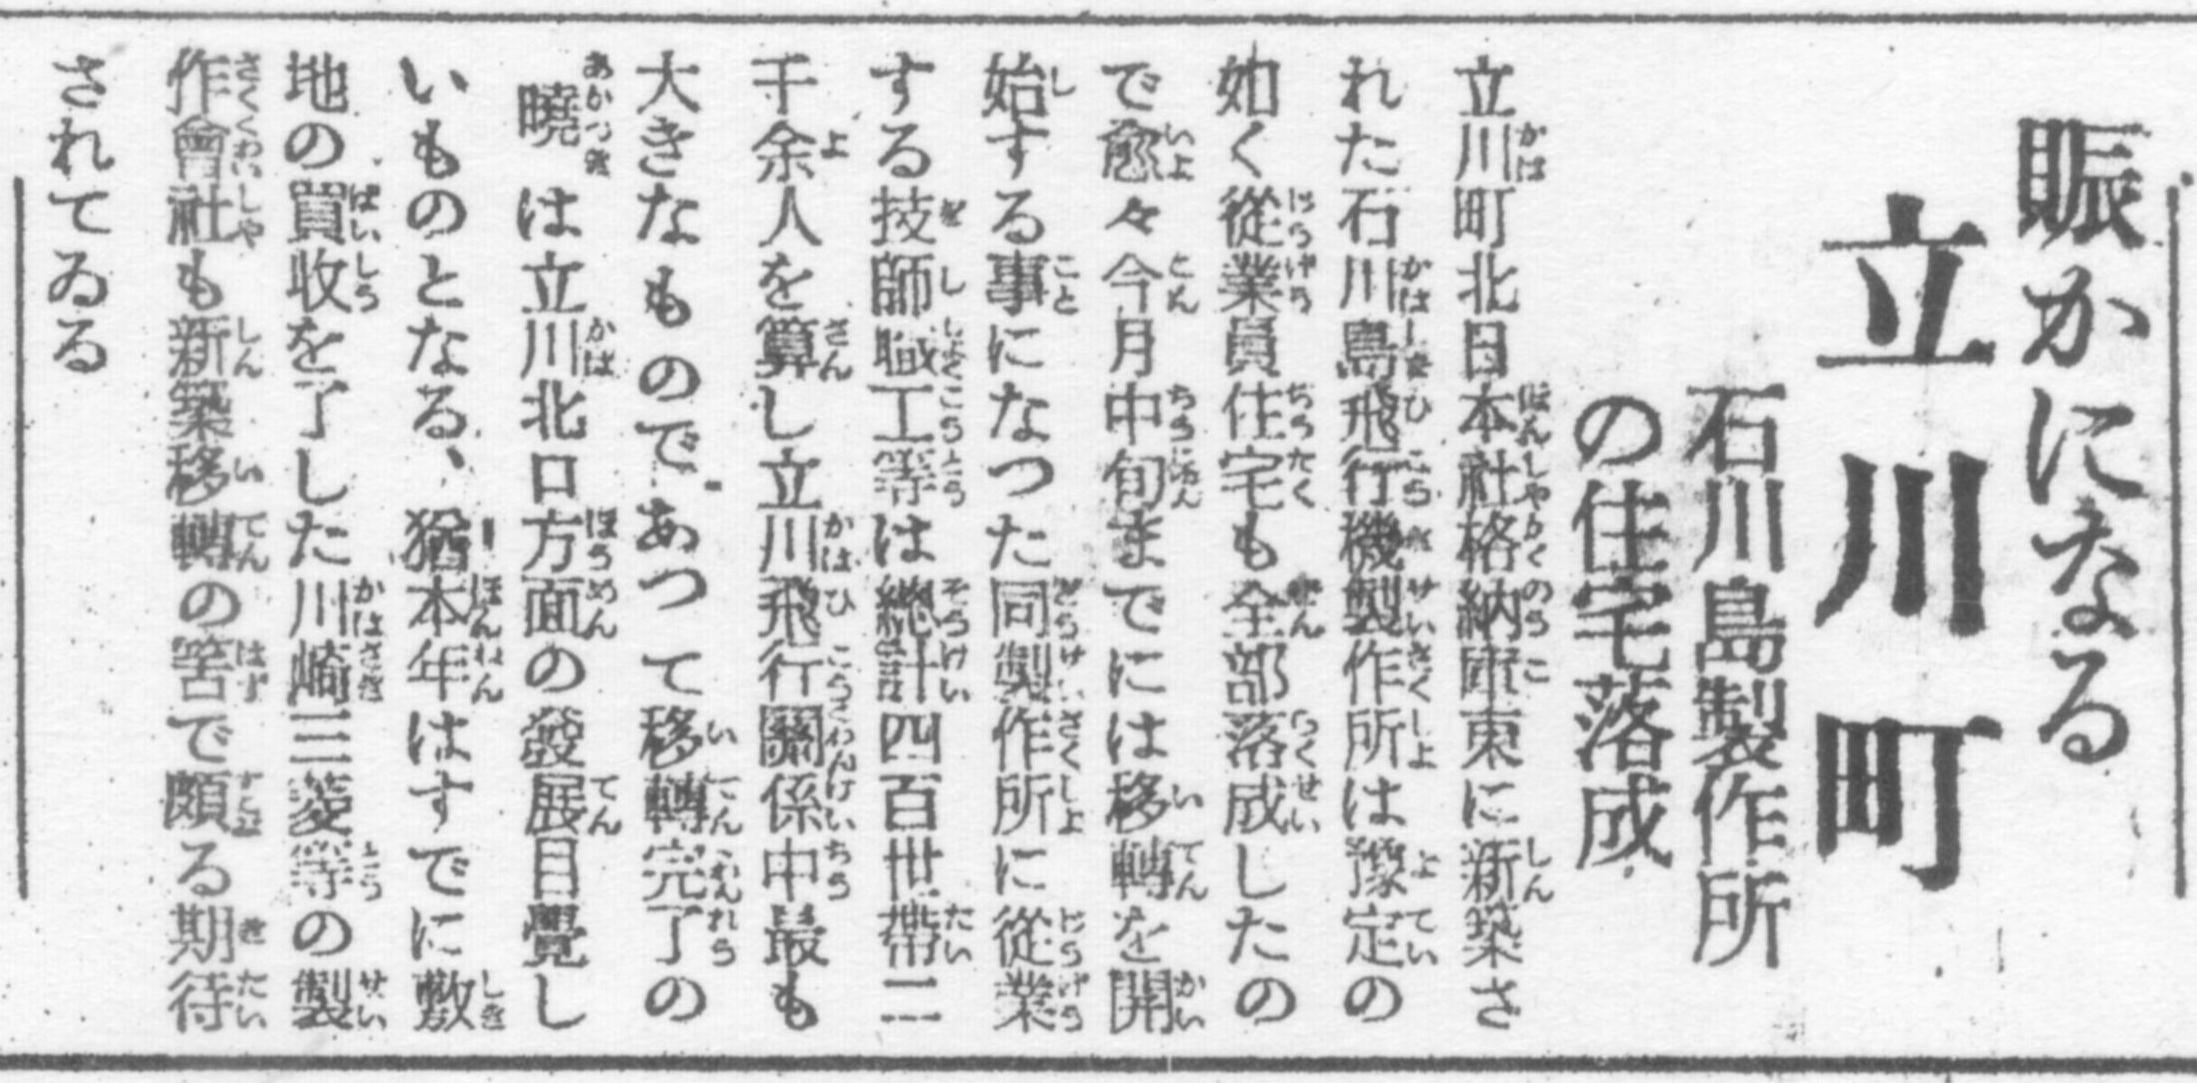 賑かになる
立川町
石川島製作所
の住宅落成
立川町北日本社格納庫東に新築さ
れた石川島飛行機製作所は豫定の
如く從業員住宅も全部落成したの
で愈々今月中旬までには移轉を開
始する事になつた同製作所に從業
する技師職工等は總計四百世帶二
千余人を算し立川飛行關係中最も
大きなものであつて移轉完了の
曉は立川北口方面の發展目覺し
いものとなる、猶本年はすでに敷
地の買收を了した川崎三菱等の製
作會社も新築移轉の筈で頗る期待
されてゐる